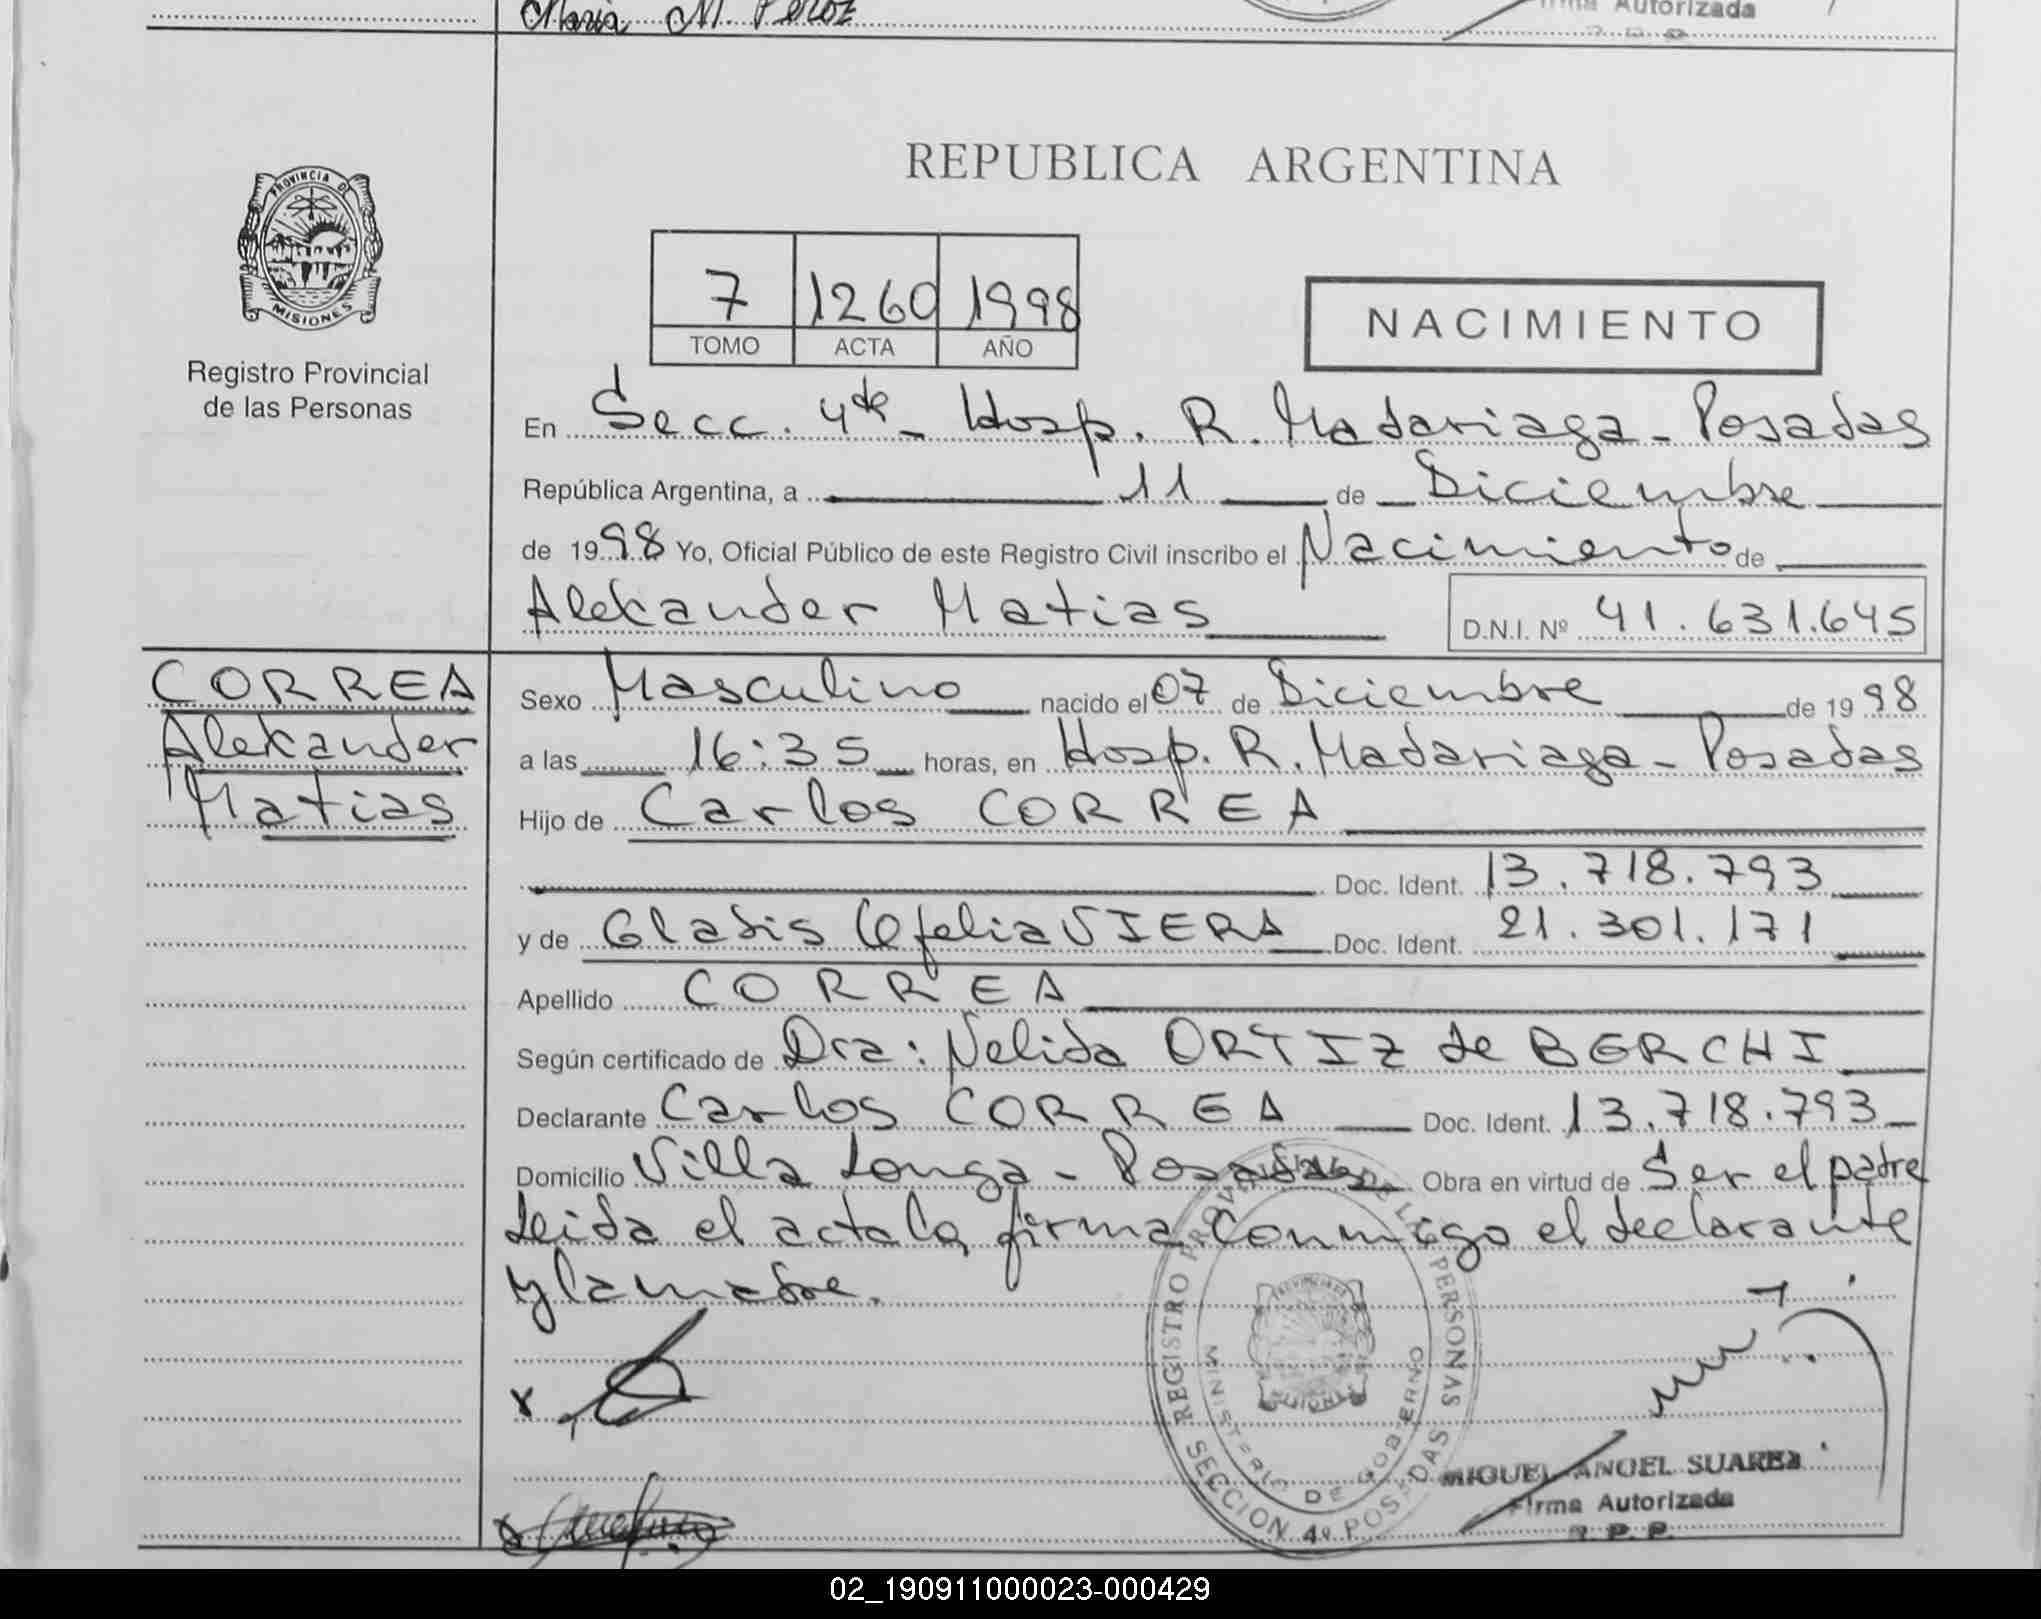 Maria M. Perez
Firma Autorizada
REPUBLICA ARGENTINA
PROVINCIA DE
MISIONES
Registro Provincial
de las Personas
7 1260 1998
TOMO ACTA AÑO
NACIMIENTO
En Secc. 4ta - Hosp. R. Madariaga - Posadas
República Argentina, a 11 de Diciembre
de 1998 Yo, Oficial Público de este Registro Civil inscribo el Nacimiento de
Alexander Matias D.N.I. Nº 41.631.645
CORREA
Alexander
Matias
Sexo Masculino nacido el 07 de Diciembre de 1998
a las 16:35 horas, en Hosp. R. Madariaga - Posadas
Hijo de Carlos CORREA
Doc. Ident. 13.718.793
y de Gladis Ofelia VIERA Doc. Ident. 21.301.171
Apellido CORREA
Según certificado de Dra: Nelida ORTIZ de BERCHI
Declarante Carlos CORREA Doc. Ident. 13.718.793
Domicilio Villa Longa - Posadas Obra en virtud de Ser el padre
Leida el acta la firma conmigo el declarante
y la madre.
REGISTRO PROVINCIAL DE LAS PERSONAS
MINISTERIO DE GOBERNO
SECCION 4º POSADAS
MIGUEL ANGEL SUAREZ
Firma Autorizada
R. P. P.
02_190911000023-000429